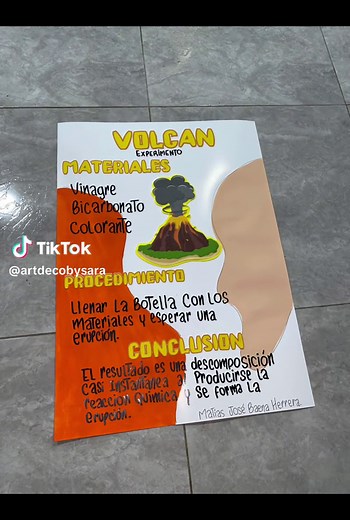 VOLCAN
EXPERIMENTO
MATERIALES
Vinagre
Bicarbonato
Colorante
TikTok
@artdecobysara
PROCEDIMIENTO
Llenar La Botella Con Los
materiales y esperar una
erupción.
CONCLUSION
El resultado es una descomposición
Casi instantanea al Producirse la
reacción Química y Se forma La
erupción.
Matias José Baena Herrera